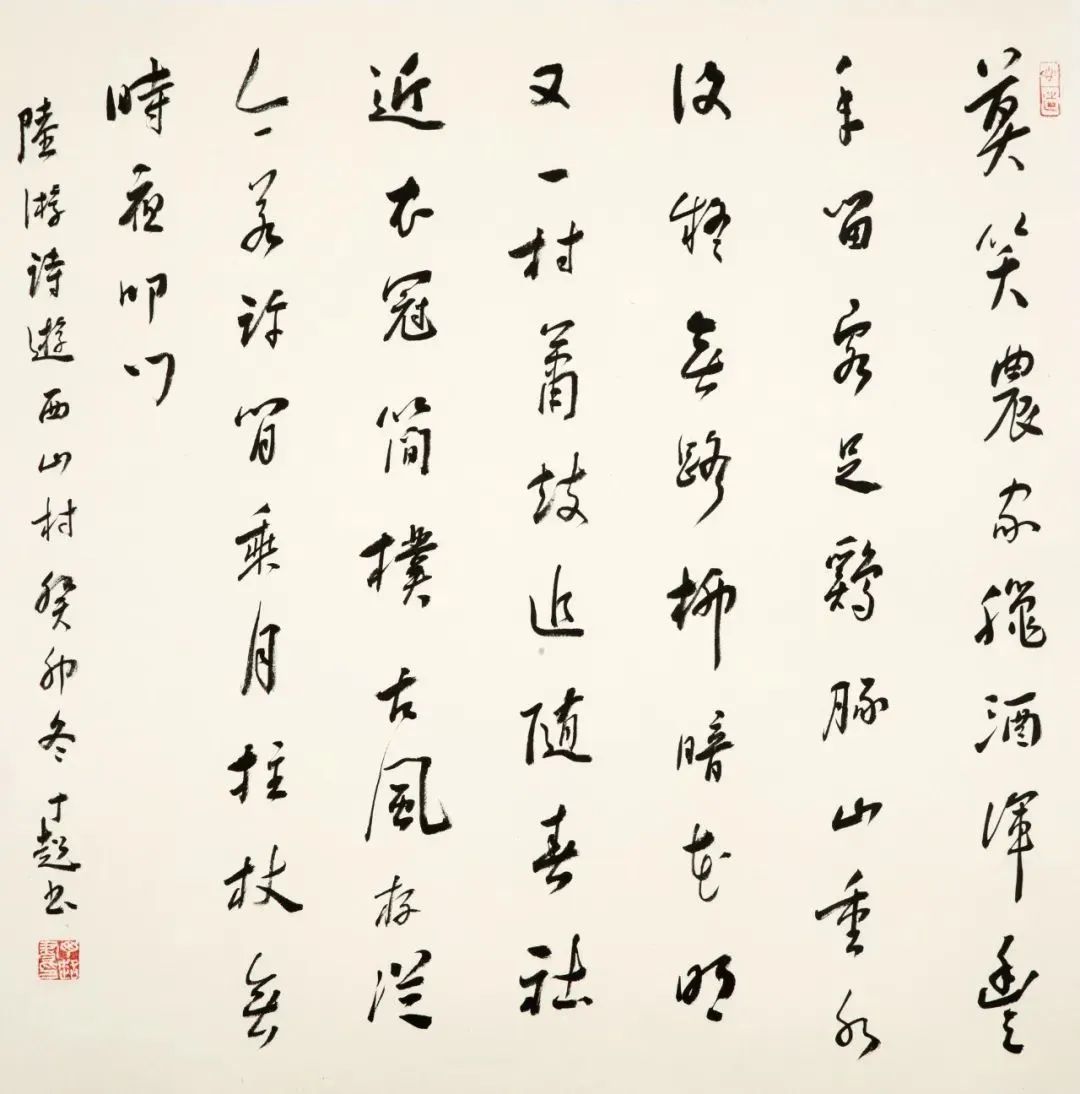 莫笑農家臘酒渾豐
年留客足鷄豚山重水
復疑無路柳暗花明
又一村蕭鼓追隨春社
近衣冠簡樸古風存從
今若許閒乘月拄杖無
時夜叩門
陸游詩遊西山村癸卯冬丁超书